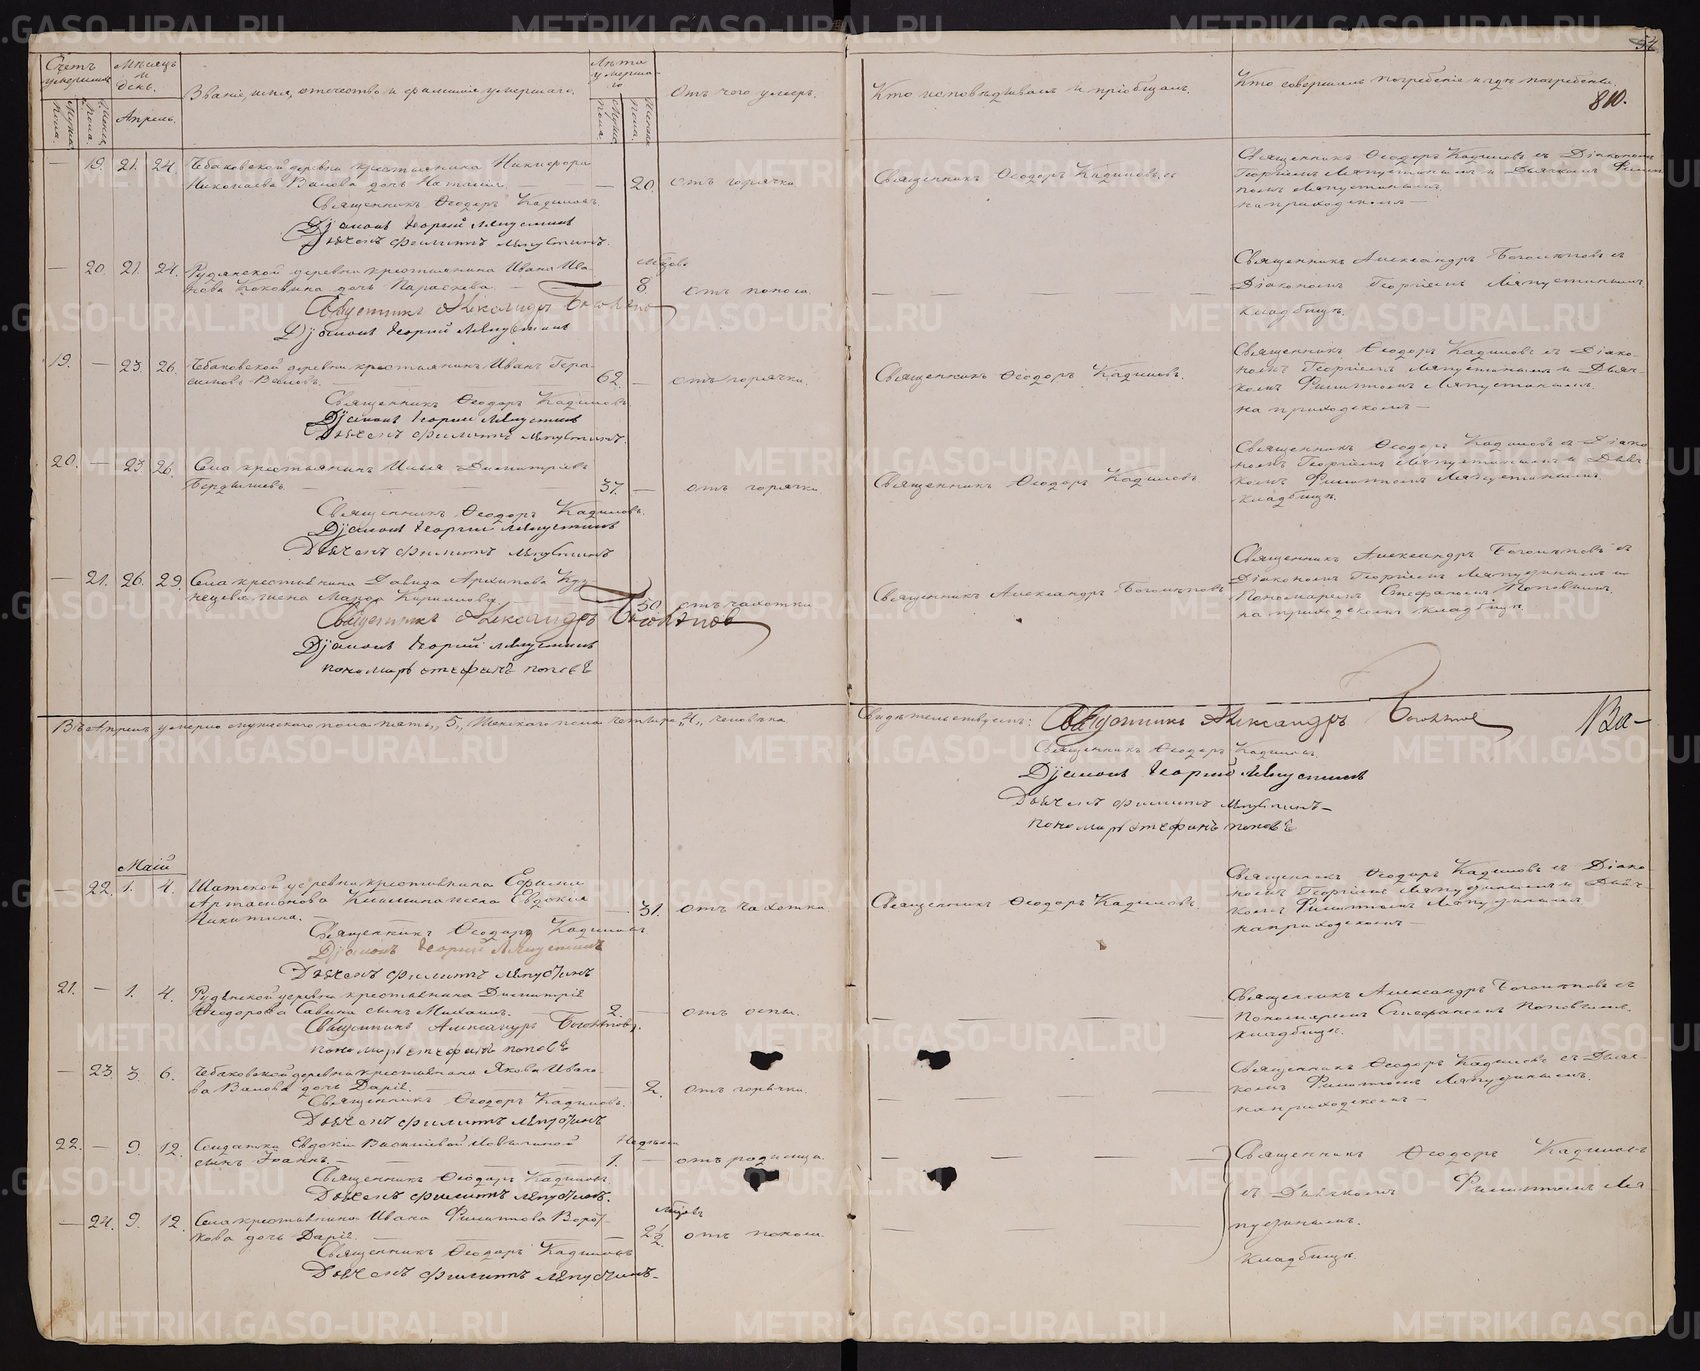 METRIKI.GASO-URAL.RU
54
Счетъ умершихъ
Мѣсяцъ и день.
Званіе, имя, отчество и фамилія умершаго.
Лѣта умершаго
Отъ чего умеръ.
Кто исповѣдывалъ и пріобщалъ.
Кто совершалъ погребеніе и гдѣ погребены.
810.
Мужск. пола.
Женск. пола.
Апрѣль.
Мужск. пола.
Женск. пола.
— 19. 21. 24. крестьянина Никифора
Николаева дочь Наталія. — 20. отъ горячки
Священникъ Ѳеодоръ Кадиловъ
Священникъ Ѳеодоръ Кадиловъ съ Діакономъ
Георгіемъ Ляпустинымъ и Дьячкомъ
на приходскомъ —
Священникъ Ѳеодоръ Кадиловъ.
Діаконъ Георгій Ляпустинъ
Дьячекъ Филиппъ Ляпустинъ.
— 20. 21. 24. Рудянской деревни крестьянина Ивана Ива-
нова дочь Параскева. — 8 отъ поноса.
Мѣсяц.
Священникъ Александръ съ
Діакономъ Георгіемъ Ляпустинымъ
кладбищѣ.
Священникъ Александръ
Діаконъ Георгій Ляпустинъ
19. — 23. 26. деревни крестьянинъ Иванъ Гера-
симовъ 62. — отъ горячки.
Священникъ Ѳеодоръ Кадиловъ.
Священникъ Ѳеодоръ Кадиловъ съ Діако-
номъ Георгіемъ Ляпустинымъ и Дьяч-
комъ Филиппомъ Ляпустинымъ.
на приходскомъ —
Священникъ Ѳеодоръ Кадиловъ
Діаконъ Георгій Ляпустинъ
Дьячекъ Филиппъ Ляпустинъ.
20. — 23. 26. Села крестьянинъ Илья Димитріевъ
37. — отъ горячки
Священникъ Ѳеодоръ Кадиловъ
Священникъ Ѳеодоръ Кадиловъ съ Діако-
номъ Георгіемъ Ляпустинымъ и Дьяч-
комъ Филиппомъ Ляпустинымъ.
кладбищѣ.
Священникъ Ѳеодоръ Кадиловъ.
Діаконъ Георгій Ляпустинъ
Дьячекъ Филиппъ Ляпустинъ
— 21. 26. 29. Села крестьянина Давида Архипова Куз-
нецова жена Марѳа Кириллова 50. отъ чахотки
Священникъ Александръ
Священникъ Александръ съ
Діакономъ Георгіемъ Ляпустинымъ и
Пономаремъ Стефаномъ Поповымъ.
на приходскомъ кладбищѣ.
Священникъ Александръ
Діаконъ Георгій Ляпустинъ
Пономарь Стефанъ Поповъ
Въ Апрѣлѣ умерло мужескаго пола пять „5„ Женскаго пола четыре „4„ человѣка
Свидѣтельствуемъ: Священникъ Александръ
Священникъ Ѳеодоръ Кадиловъ.
Діаконъ Георгій Ляпустинъ
Дьячекъ Филиппъ Ляпустинъ
Пономарь Стефанъ Поповъ
Маій
— 22. 1. 4. деревни крестьянина Ефима
Артамонова жена Евдокія
Никитина. 31. отъ чахотки
Священникъ Ѳеодоръ Кадиловъ.
Священникъ Ѳеодоръ Кадиловъ съ Діако-
номъ Георгіемъ Ляпустинымъ и Дьяч-
комъ Филиппомъ Ляпустинымъ
на приходскомъ —
Священникъ Ѳеодоръ Кадиловъ
Діаконъ Георгій Ляпустинъ
Дьячекъ Филиппъ Ляпустинъ
21. — 1. 4. Рудянской деревни крестьянина Димитрія
Ѳеодорова Савина сынъ Михаилъ. — 2. отъ оспы.
Священникъ Александръ съ
Пономаремъ Стефаномъ Поповымъ.
кладбищѣ.
Священникъ Александръ
Пономарь Стефанъ Поповъ
— 23. 3. 6. деревни крестьянина Якова Ивано-
ва дочь Дарія. — 2. отъ горячки.
Священникъ Ѳеодоръ Кадиловъ съ Дьяч-
комъ Филиппомъ Ляпустинымъ.
на приходскомъ —
Священникъ Ѳеодоръ Кадиловъ.
Дьячекъ Филиппъ Ляпустинъ
22. — 9. 12. Солдатки Евдокіи Васильевой
сынъ Іоаннъ. — 1. — отъ родимца.
Недѣли
Священникъ Ѳеодоръ Кадиловъ
съ Дьячкомъ Филиппомъ Ля-
пустинымъ.
кладбищѣ.
Священникъ Ѳеодоръ Кадиловъ
Дьячекъ Филиппъ Ляпустинъ.
— 24. 9. 12. Села крестьянина Ивана Филиппова
дочь Дарія. — 2½ отъ поноса.
Мѣсяц.
Священникъ Ѳеодоръ Кадиловъ
Дьячекъ Филиппъ Ляпустинъ